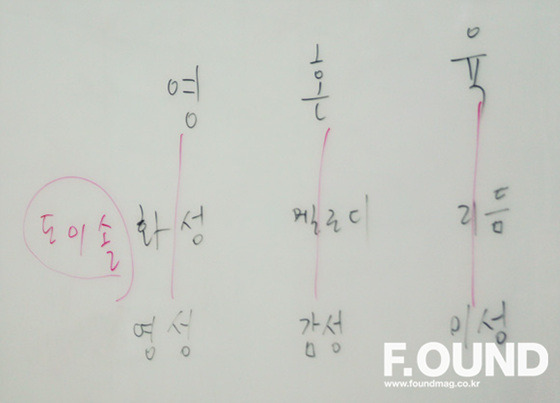 영 혼 육
도미솔 화성 멜로디 리듬
영성 감성 이성
F.OUND
www.foundmag.co.kr